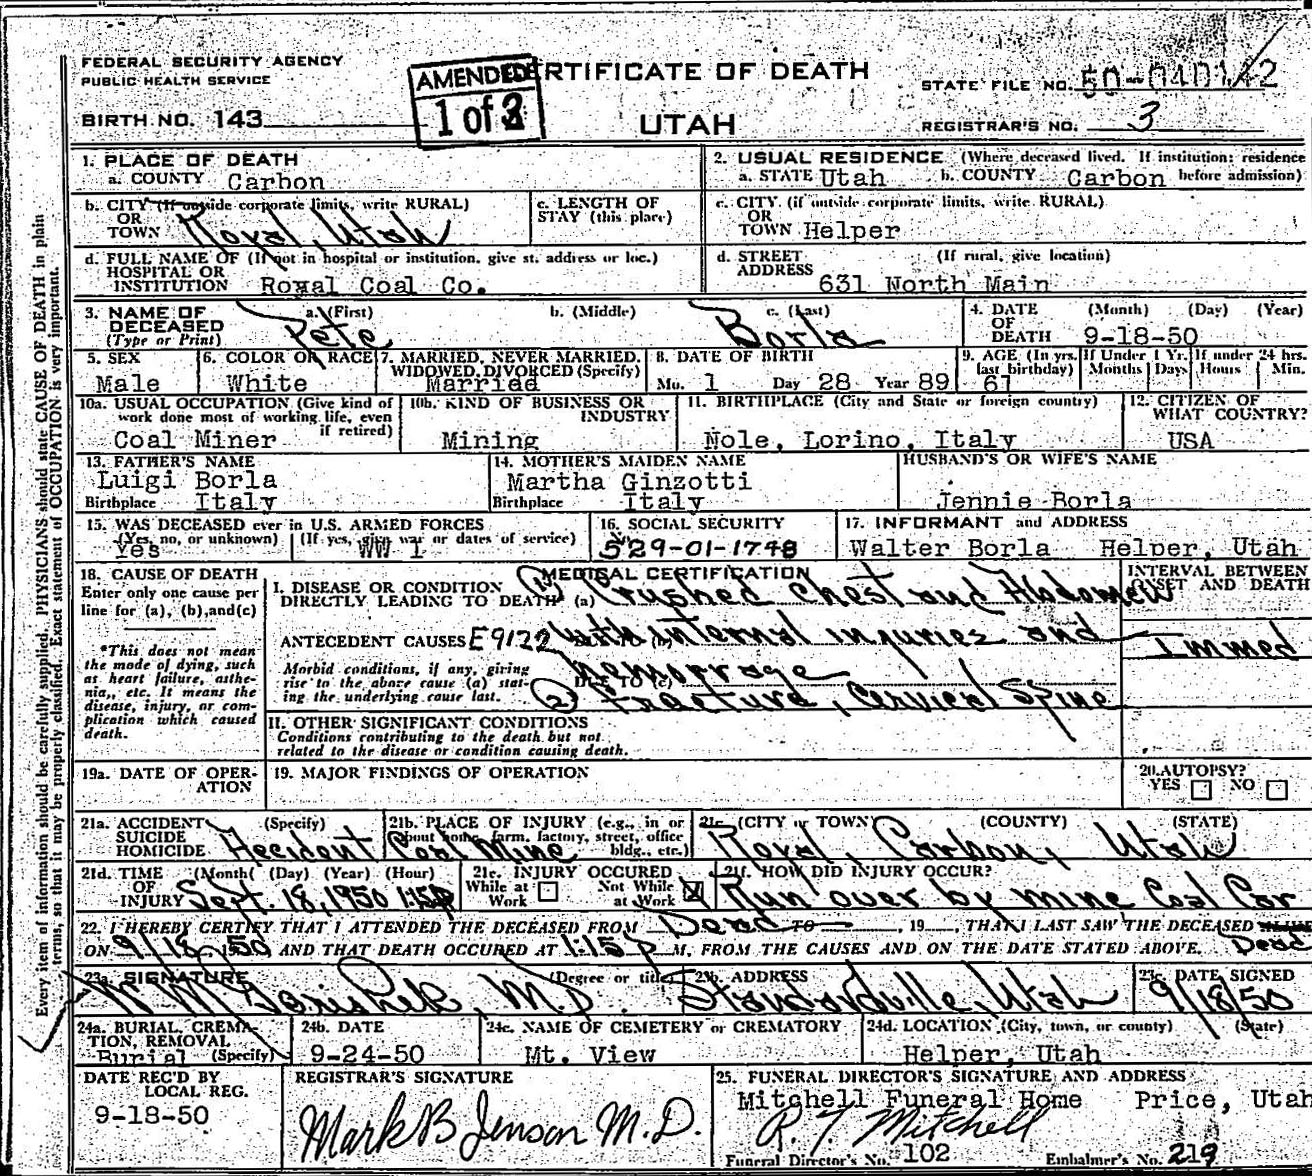 FEDERAL SECURITY AGENCY
PUBLIC HEALTH SERVICE
BIRTH NO. 143
AMENDED
1 of
CERTIFICATE OF DEATH
UTAH
STATE FILE NO.
REGISTRAR'S NO. 3
Every item of information should be carefully supplied. PHYSICIANS should state CAUSE OF DEATH in plain
terms, so that it may be properly classified. Exact statement of OCCUPATION is very important.
1. PLACE OF DEATH
a. COUNTY Carbon
2. USUAL RESIDENCE (Where deceased lived. If institution: residence
a. STATE Utah b. COUNTY Carbon before admission)
b. CITY (If outside corporate limits, write RURAL)
OR
TOWN Royal, Utah
c. LENGTH OF
STAY (this place)
c. CITY (if outside corporate limits, write RURAL)
OR
TOWN Helper
d. FULL NAME OF (If not in hospital or institution, give st. address or loc.)
HOSPITAL OR
INSTITUTION Royal Coal Co.
d. STREET (If rural, give location)
ADDRESS
631 North Main
3. NAME OF a. (First) b. (Middle) c. (Last)
DECEASED
(Type or Print) Pete Borla
4. DATE (Month) (Day) (Year)
OF
DEATH 9-18-50
5. SEX
Male
6. COLOR OR RACE
White
7. MARRIED, NEVER MARRIED,
WIDOWED, DIVORCED (Specify)
Married
8. DATE OF BIRTH
Mo. 1 Day 28 Year 89
9. AGE (In yrs.
last birthday)
61
If Under 1 Yr.
Months Days
If under 24 hrs.
Hours Min.
10a. USUAL OCCUPATION (Give kind of
work done most of working life, even
if retired)
Coal Miner
10b. KIND OF BUSINESS OR
INDUSTRY
Mining
11. BIRTHPLACE (City and State or foreign country)
Nole, Lorino, Italy
12. CITIZEN OF
WHAT COUNTRY?
USA
13. FATHER'S NAME
Luigi Borla
Birthplace Italy
14. MOTHER'S MAIDEN NAME
Martha Ginzotti
Birthplace Italy
HUSBAND'S OR WIFE'S NAME
Jennie Borla
15. WAS DECEASED ever in U.S. ARMED FORCES
(Yes, no, or unknown) (If yes, give war or dates of service)
yes WW 1
16. SOCIAL SECURITY
529-01-1748
17. INFORMANT and ADDRESS
Walter Borla Helper, Utah
18. CAUSE OF DEATH
Enter only one cause per
line for (a), (b), and (c)
*This does not mean
the mode of dying, such
as heart failure, asthe-
nia, etc. It means the
disease, injury, or com-
plication which caused
death.
MEDICAL CERTIFICATION
I. DISEASE OR CONDITION
DIRECTLY LEADING TO DEATH (a) Crushed chest and Abdomen
ANTECEDENT CAUSES E9122 with internal injuries and
Morbid conditions, if any, giving
rise to the above cause (a) stat-
ing the underlying cause last.
hemorrage
DUE TO (c)
(2) Fracture, Cervical Spine
INTERVAL BETWEEN
ONSET AND DEATH
Immed
II. OTHER SIGNIFICANT CONDITIONS
Conditions contributing to the death but not
related to the disease or condition causing death.
19a. DATE OF OPER-
ATION
19. MAJOR FINDINGS OF OPERATION
20. AUTOPSY?
YES NO
21a. ACCIDENT (Specify)
SUICIDE
HOMICIDE Accident
21b. PLACE OF INJURY (e.g., in or
about home, farm, factory, street, office
bldg., etc.)
Coal Mine
21c. (CITY or TOWN) (COUNTY) (STATE)
Royal, Carbon, Utah
21d. TIME (Month) (Day) (Year) (Hour)
OF
INJURY Sept. 18, 1950
21e. INJURY OCCURED
While at Work
Not While at Work
21f. HOW DID INJURY OCCUR?
Run over by mine Coal Car
22. I HEREBY CERTIFY THAT I ATTENDED THE DECEASED FROM Dead TO , 19 , THAT I LAST SAW THE DECEASED
ON 9/18/50 AND THAT DEATH OCCURED AT 1:15 P M, FROM THE CAUSES AND ON THE DATE STATED ABOVE. Dead
23a. SIGNATURE (Degree or title)
M.D.
23b. ADDRESS
Standardville, Utah
23c. DATE SIGNED
9/18/50
24a. BURIAL, CREMA-
TION, REMOVAL
(Specify)
Burial
24b. DATE
9-24-50
24c. NAME OF CEMETERY or CREMATORY
Mt. View
24d. LOCATION (City, town, or county) (State)
Helper, Utah
DATE REC'D BY
LOCAL REG.
9-18-50
REGISTRAR'S SIGNATURE
Mark B Jenson M.D.
25. FUNERAL DIRECTOR'S SIGNATURE AND ADDRESS
Mitchell Funeral Home Price, Utah
R. T. Mitchell
Funeral Director's No. 102 Embalmer's No. 219